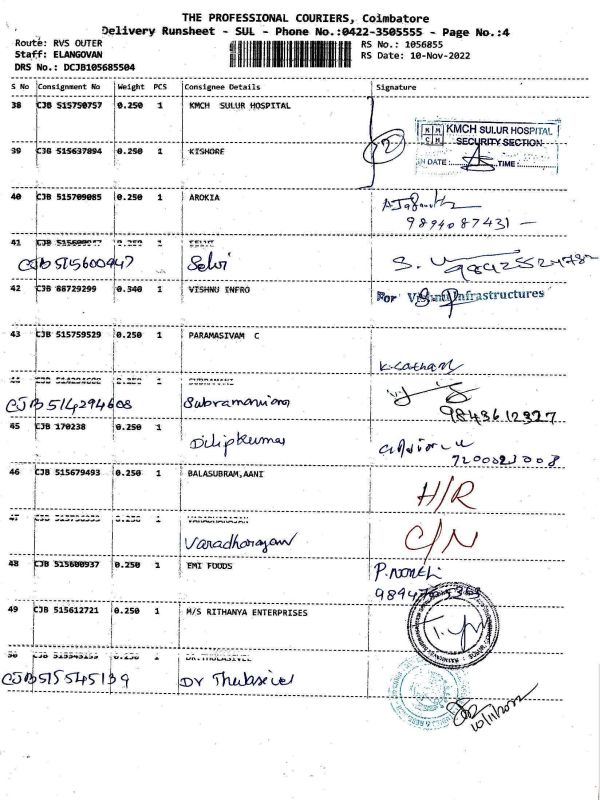 THE PROFESSIONAL COURIERS, Coimbatore
Delivery Runsheet - SUL - Phone No.:0422-3505555 - Page No.:4
Route: RVS OUTER RS No.: 1056855
Staff: ELANGOVAN RS Date: 10-Nov-2022
DRS No.: DCJB105685504
S No Consignment No Weight PCS Consignee Details Signature
38 CJB 515750757 0.250 1 KMCH SULUR HOSPITAL
KMCH SULUR HOSPITAL
SECURITY SECTION
IN DATE: TIME:
2
39 CJB 515637894 0.250 1 KISHORE
40 CJB 515709085 0.250 1 AROKIA
9894087431
41
CJB515600947 Selvi
42 CJB 88729299 0.340 1 VISHNU INFRO
For Vishnu Infrastructures
43 CJB 515759529 0.250 1 PARAMASIVAM C
44 CJB 514294608 0.250 1 SUBRAMANI
CJB514294608
9843612327
45 CJB 170238 0.250 1
Dilipkumar
46 CJB 515679493 0.250 1 BALASUBRAM,AANI
H/R
47 0.250 1 VARADHARAJAN
Varadharajan
C/N
48 CJB 515600937 0.250 1 EMI FOODS
49 CJB 515612721 0.250 1 M/S RITHANYA ENTERPRISES
50 CJB 0.250 1 DR.THULASIVEL
CJB515545139 Dr Thulasivel
10/11/2022